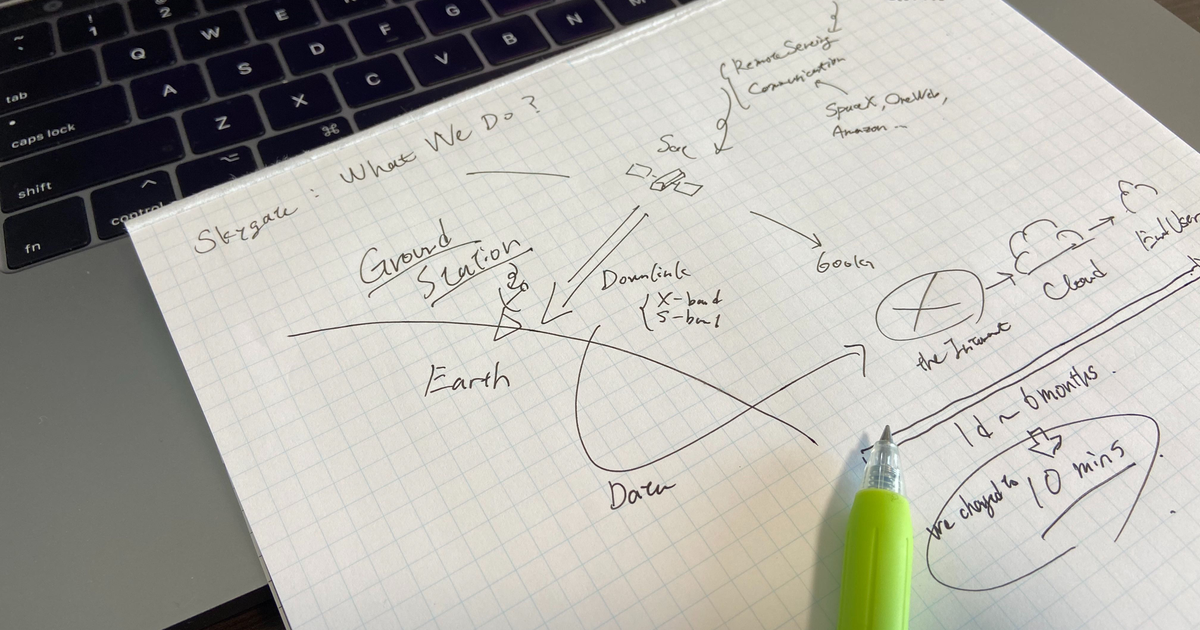 ~
!
1
@
2
Q
W
E
tab
A
S
D
F
G
caps lock
Z
X
C
V
B
N
M
shift
⌥
⌘
^
control
fn
Skygate : What We Do ?
Remote Sensing
Communication
SpaceX, OneWeb,
Amazon ...
Ground
Station
Downlink
X-band
S-band
Earth
Data
the Internet
Cloud
End User
1d ~ 6 months.
we changed to 10 mins